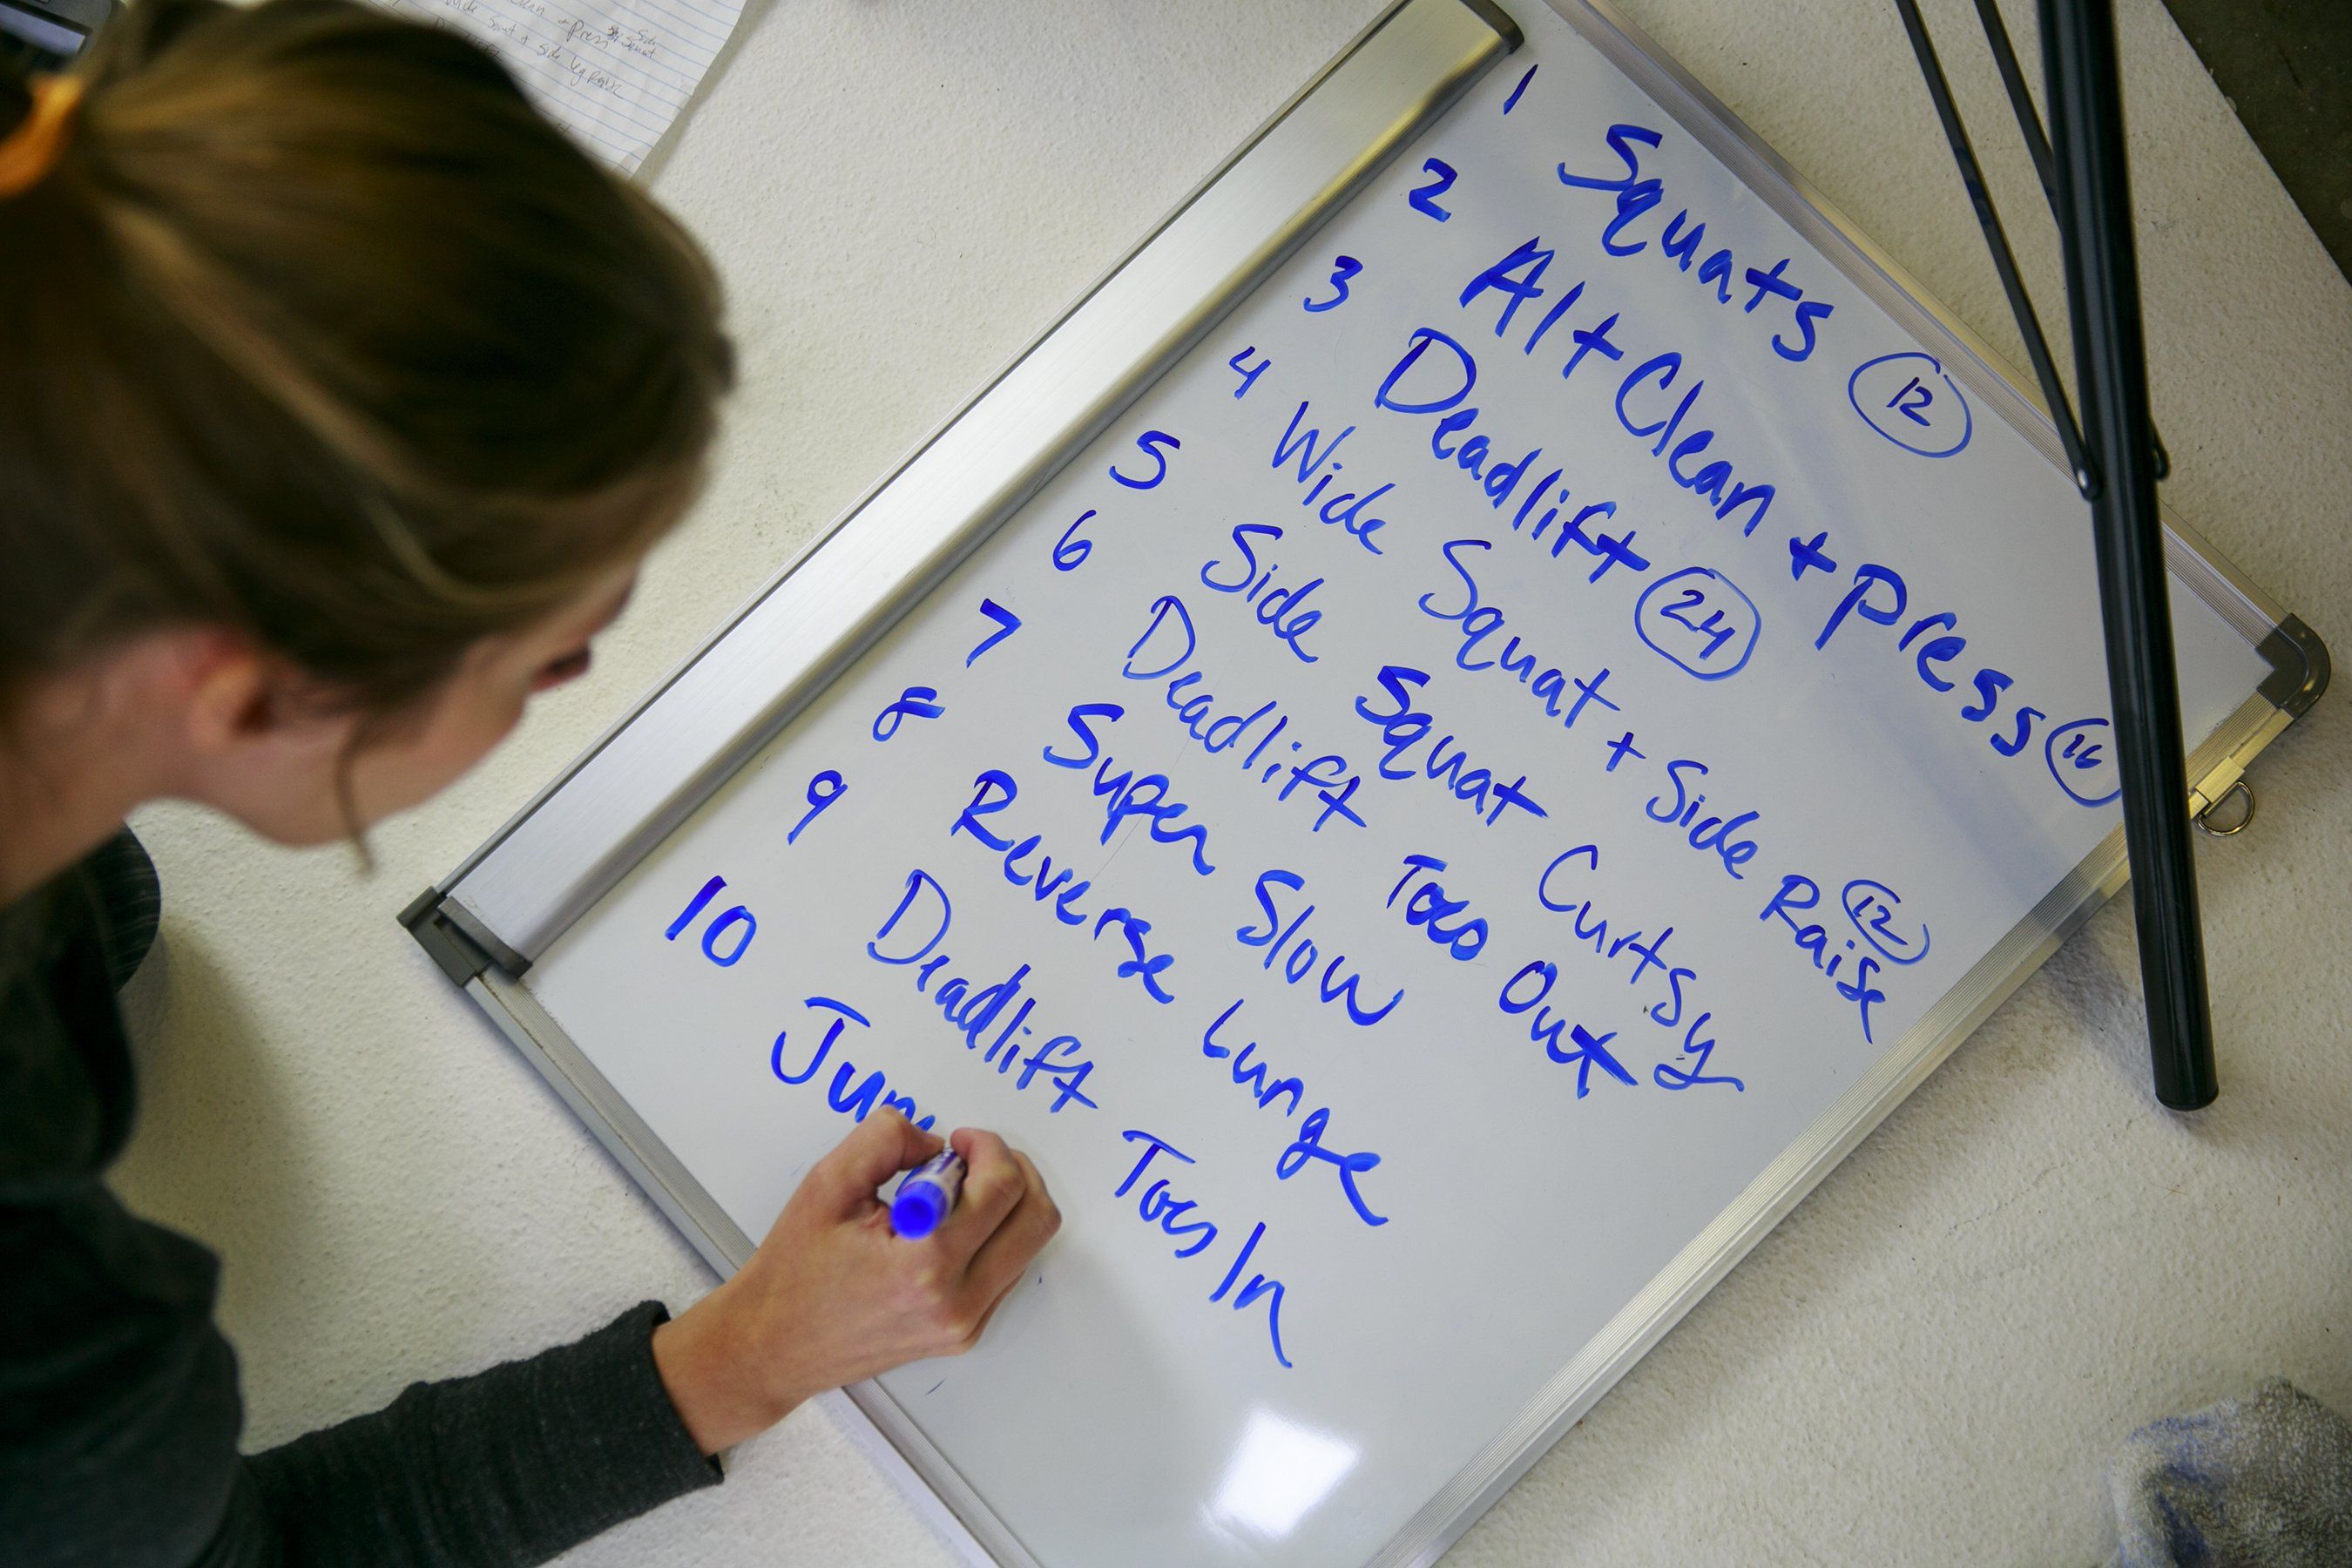 1 Squats 12
2 Alt Clean + Press 16
3 Deadlift 24
4 Wide Squat + Side Raise 12
5 Side Squat Curtsy
6 Deadlift Toes Out
7 Super Slow
8 Reverse Lunge
9 Deadlift Toes In
10 Jum
+ Press Side Squat
Wide Squat + Side leg Raise